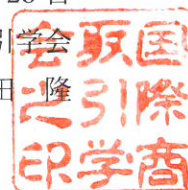 日
引学会
田 隆
国際商
取引学
会之印